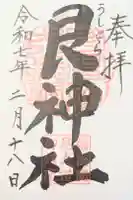 奉拝
うしとら
艮神社
令和七年二月十八日